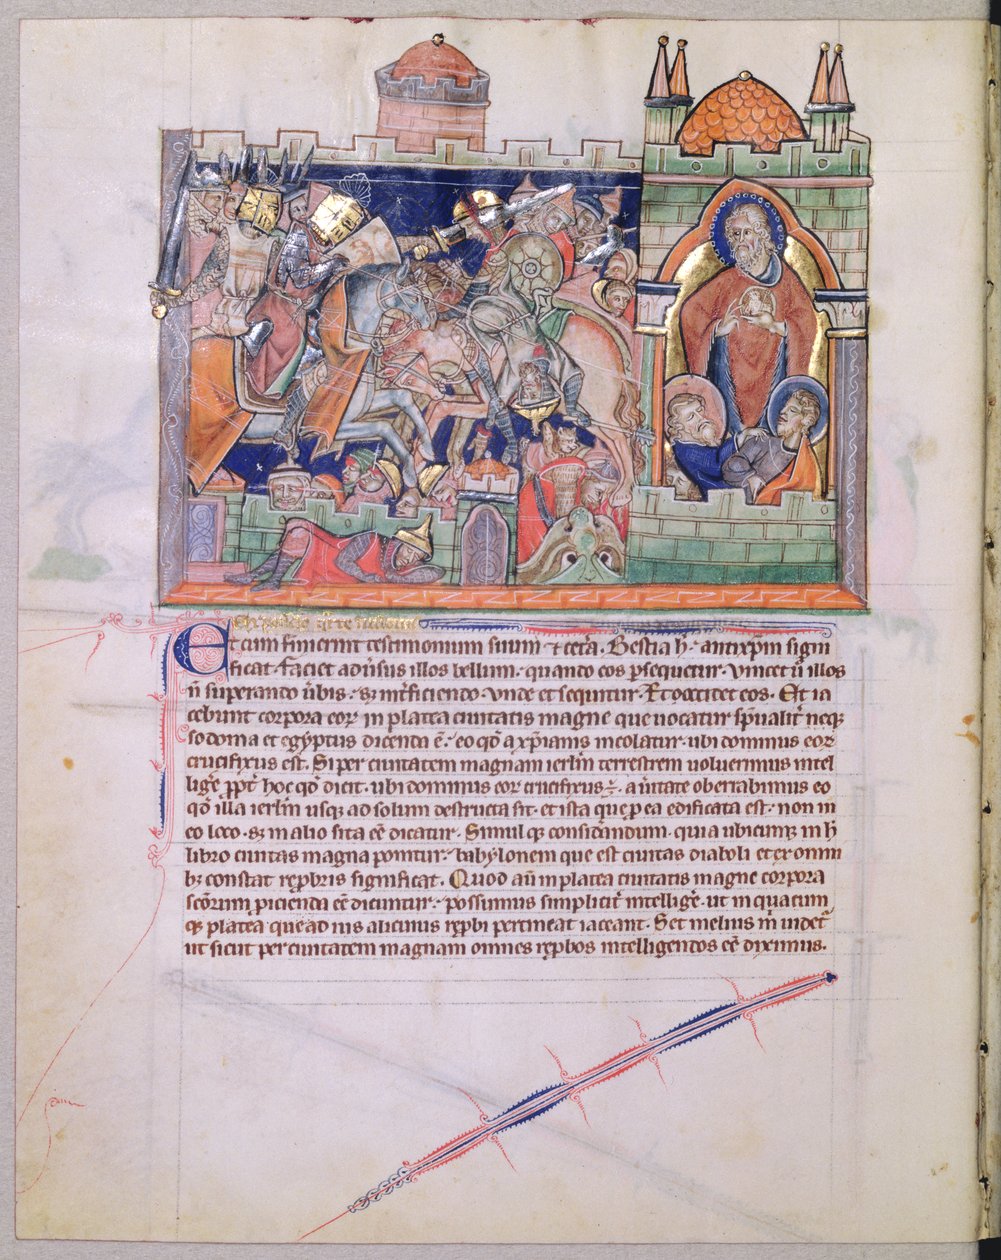 Et cum finierint testimonium suum · ⁊ cetera. Bestia h̄ · antixp̄m signi
ficat · faciet aduersus illos bellum · quando eos ꝑsequetur · Vincet ū illos
n̄ superando u̾bis · sꝫ int̾ficiendo · Vnde et sequitur · Et occidet eos · Et ia
cebunt corpora eoꝝ in platea ciuitatis magne que uocatur sp̄ualit̾
sodoma et egyptus dicenda ē · eo qd̾ a xp̄ianis incolatur · ubi dominus eoꝝ
crucifixus est. Si per ciuitatem magnam ierlm̄ terrestrem uoluerimus intel
lige̾ ꝓpt̾ hoc qd̾ dicit · ubi dominus eoꝝ crucifixus · a uitate oberrabimus eo
qd̾ illa ierlm̄ usqꝫ ad solum destructa sit · et ista que ꝑ ea edificata est · non in
eo loco · sꝫ in alio sita eē dicatur · Simul qꝫ considandum · quia ubicumqꝫ in h̄
libro ciuitas magna ponitur · babylonem que est ciuitas diaboli et ex omni
bꝫ constat rep̱bris significat. Quod au̅ in platea ciuitatis magne corpora
sc̄orum ꝓicienda eē dicuntur · possumus simplicit̾ intellige̾ · ut in quacum
qꝫ platea que ad ius alicuius rep̱bi pertineat iaceant · Set melius m̄ uidet̾
ut sicut per ciuitatem magnam omnes rep̱bos intelligendos eē diximus.